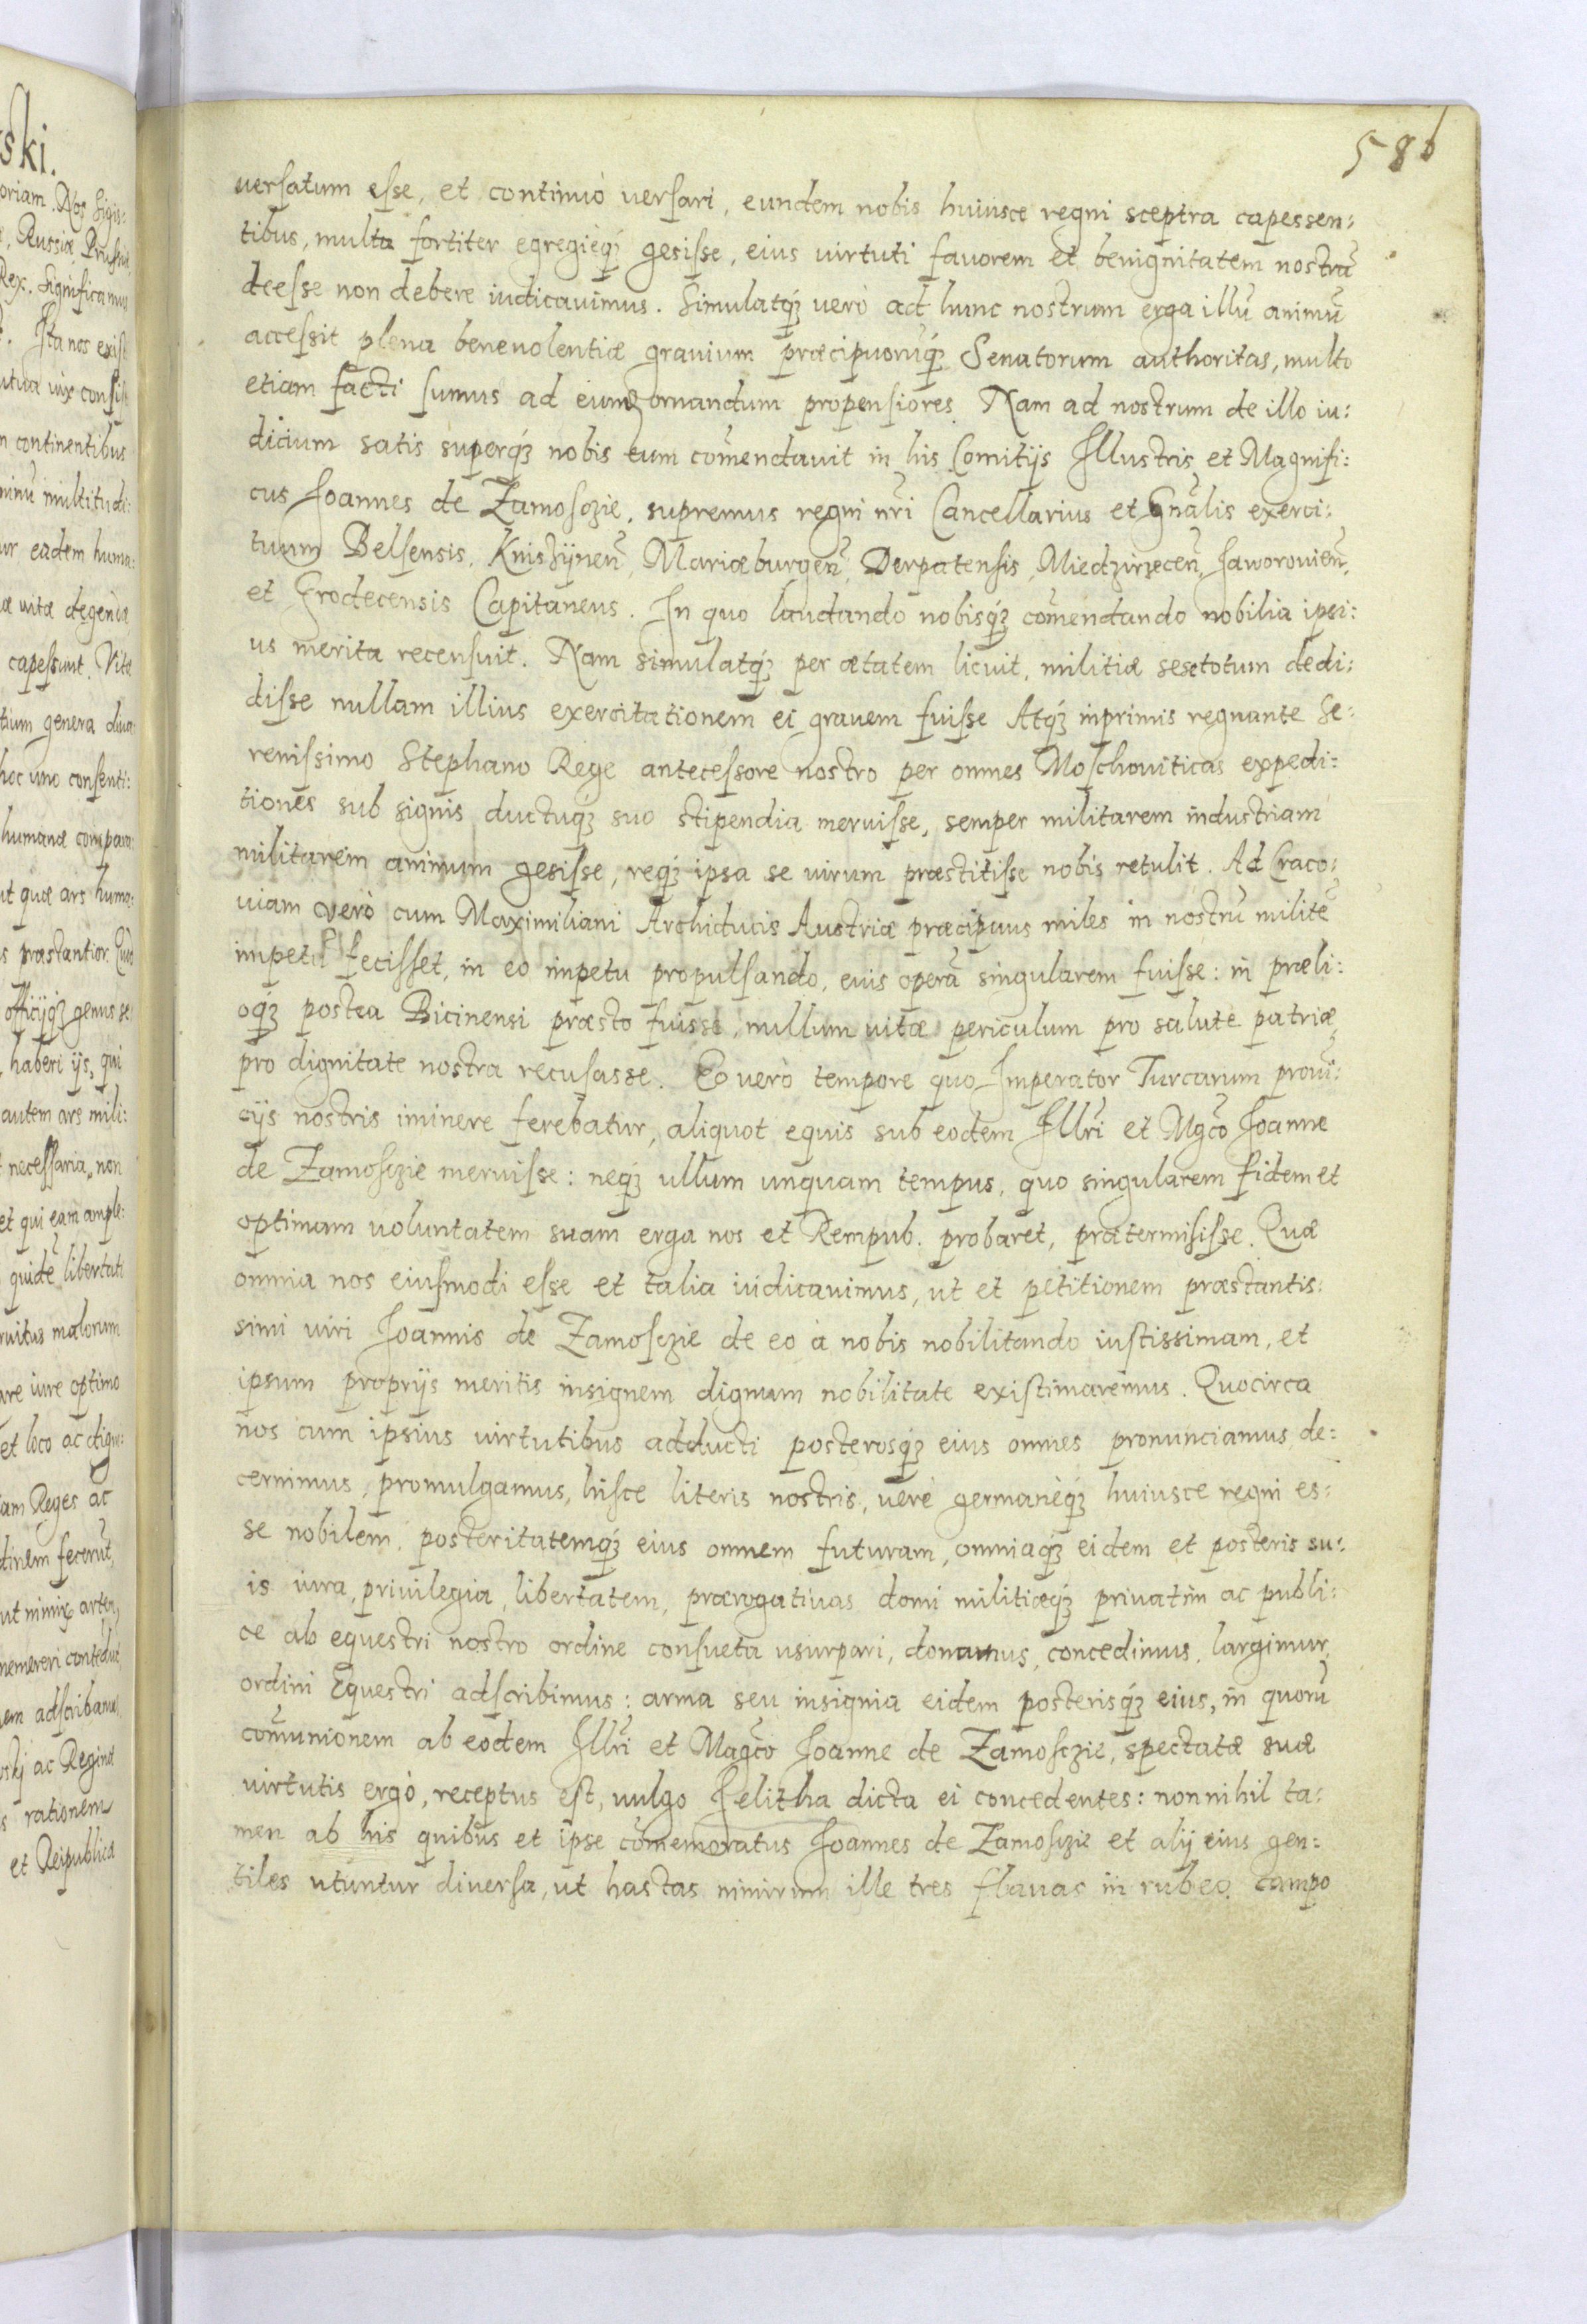 586
versatum esse, et continuò versari, eundem nobis huiusce regni sceptra capessen:
tibus, multa fortiter egregieq́ꝫ gesisse, eius virtuti favorem et benignitatem nostrū
deesse non debere iudicavimus. Simulatq́ꝫ verò ad hunc nostrum erga illū animū
accessit plena benevolentiæ gravium præcipuorūq́ꝫ Senatorum authoritas, multo
etiam facti sumus ad eum ornandum propensiores. Nam ad nostrum de illo iu:
dicium satis superq́ꝫ nobis eum com̄endavit in his Comitijs Illustris et Magnifi:
cus Joannes de Zamosczie, supremus regni nr̄i Cancellarius et Gn̄alis exerci:
tuum Belsensis, Knisziȷnen̄, Mariæburgen̄, Derpatensis, Miedzirzecen̄, Jaworovien̄,
et Grodecensis Capitaneus. In quo laudando nobisq́ꝫ com̄endando nobilia ipsi:
us merita recensuit. Nam simulatq́ꝫ per ætatem licuit, militiæ sese totum dedi:
disse nullam illius exercitationem ei gravem fuisse Atq́ꝫ inprimis regnante Se:
renissimo Stephano Rege antecessore nostro per omnes Moschoviticas expedi:
tiones sub signis ductuq́ꝫ suo stipendia meruisse, semper militarem industriam
militarem animum gesisse, req́ꝫ ipsa se virum præstitisse nobis retulit. Ad Craco:
uiam verò cum Maximiliani Archiducis Austriæ præcipuus miles in nostrū militē
impetū fecisset, in eo impetu propulsando, eius operā singularem fuisse: in præli:
oq́ꝫ postea Bicinensi præsto fuisse, nullum vitæ periculum pro salute patriæ,
pro dignitate nostra recusasse. Eo verò tempore quo Imperator Turcarum provī:
cijs nostris im̄inere ferebatur, aliquot equis sub eodem Illr̄i et Mgc̄o Joanne
de Zamosczie meruisse: neq́ꝫ ullum unquam tempus, quo singularem fidem et
optimam voluntatem suam erga nos et Rempub. probaret, prætermisisse. Quæ
omnia nos eiusmodi esse et talia iudicavimus, ut et petitionem præstantis:
simi viri Joannis de Zamosczie de eo à nobis nobilitando iustissimam, et
ipsum proprijs meritis insignem dignum nobilitate existimaremus. Quocirca
nos cum ipsius virtutibus adducti posterosq́ꝫ eius omnes pronunciamus, de:
cernimus, promulgamus, hisce literis nostris, verè germanèq́ꝫ huiusce regni es:
se nobilem, posteritatemq́ꝫ eius omnem futuram, omniaq́ꝫ eidem et posteris su:
is iura, privilegia, libertatem, prærogativas domi militiæq́ꝫ privatim ac publi:
ce ab equestri nostro ordine consueta usurpari, donamus, concedimus, largimur,
ordini Equestri adscribimus: arma seu insignia eidem posterisq́ꝫ eius, in quorū
com̄unionem ab eodem Illr̄i et Magc̄o Joanne de Zamosczie, spectatæ suæ
virtutis ergò, receptus est, vulgo Jelitha dicta ei concedentes: nonnihil ta:
men ab his quibus et ipse com̄emoratus Joannes de Zamosczie et alij eius gen:
tiles utuntur diversa, ut hastas nimirum ille tres flavas in rubeo campo